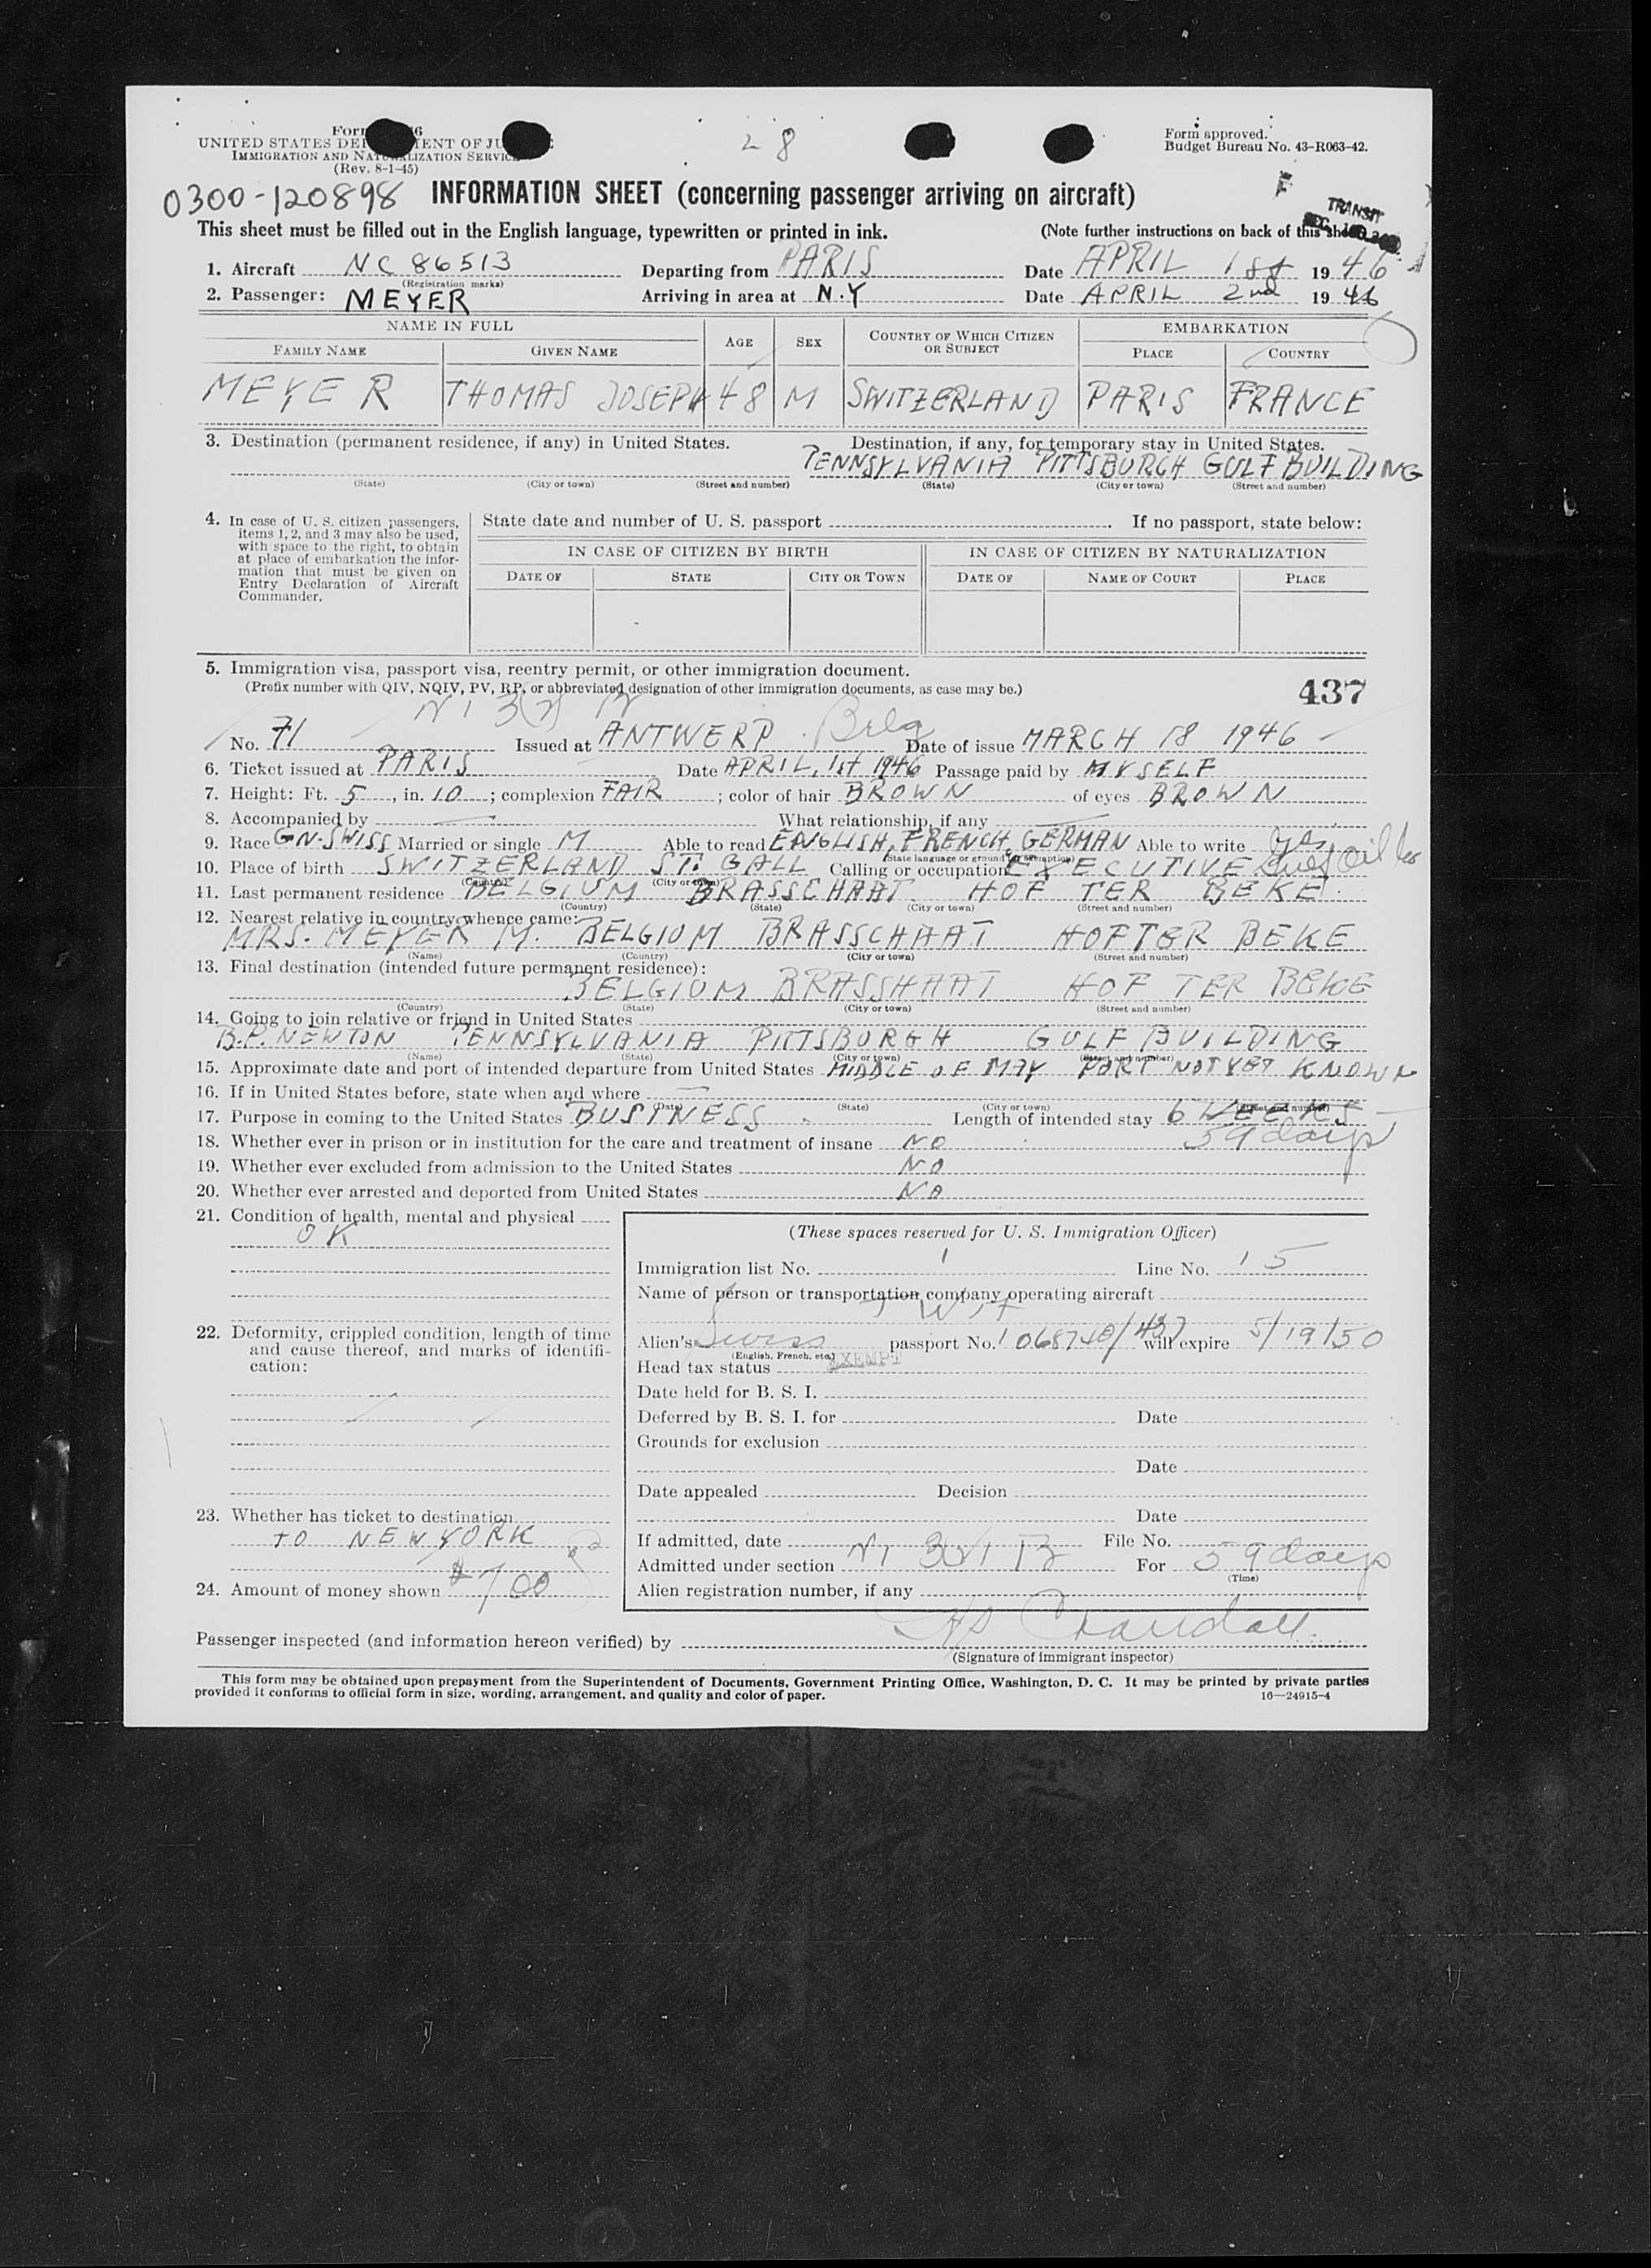 28
Form approved.
Budget Bureau No. 43-R063-42.
UNITED STATES
IMMIGRATION AND NATURALIZATION SERVICE
(Rev. 8-1-45)
0300-120898 INFORMATION SHEET (concerning passenger arriving on aircraft)
TRANSIT
This sheet must be filled out in the English language, typewritten or printed in ink. (Note further instructions on back of this sheet)
1. Aircraft NC 86513 Departing from PARIS Date APRIL 1st 1946
(Registration marks)
2. Passenger: MEYER Arriving in area at N.Y Date APRIL 2nd 1946
NAME IN FULL AGE SEX COUNTRY OF WHICH CITIZEN OR SUBJECT EMBARKATION
FAMILY NAME GIVEN NAME PLACE COUNTRY
MEYER THOMAS JOSEPH 48 M SWITZERLAND PARIS FRANCE
3. Destination (permanent residence, if any) in United States. Destination, if any, for temporary stay in United States.
PENNSYLVANIA PITTSBURGH GULF BUILDING
(State) (City or town) (Street and number) (State) (City or town) (Street and number)
4. In case of U. S. citizen passengers, items 1, 2, and 3 may also be used, with space to the right, to obtain at place of embarkation the information that must be given on Entry Declaration of Aircraft Commander.
State date and number of U. S. passport . If no passport, state below:
IN CASE OF CITIZEN BY BIRTH IN CASE OF CITIZEN BY NATURALIZATION
DATE OF STATE CITY OR TOWN DATE OF NAME OF COURT PLACE
5. Immigration visa, passport visa, reentry permit, or other immigration document.
(Prefix number with QIV, NQIV, PV, RP, or abbreviated designation of other immigration documents, as case may be.) 437
No. 71 Issued at ANTWERP Belg Date of issue MARCH 18 1946
6. Ticket issued at PARIS Date APRIL, 1st 1946 Passage paid by MYSELF
7. Height: Ft. 5, in. 10; complexion FAIR; color of hair BROWN of eyes BROWN
8. Accompanied by What relationship, if any
9. Race GN-SWISS Married or single M Able to read ENGLISH, FRENCH, GERMAN Able to write Yes
10. Place of birth SWITZERLAND ST. GALL Calling or occupation EXECUTIVE Gulf Oil
(Country) (City or town)
11. Last permanent residence BELGIUM BRASSCHAAT HOF TER BEKE
(Country) (State) (City or town) (Street and number)
12. Nearest relative in country whence came:
MRS. MEYER M. BELGIUM BRASSCHAAT HOFTER BEKE
(Name) (Country) (City or town) (Street and number)
13. Final destination (intended future permanent residence):
BELGIUM BRASSHAAT HOF TER BEKE
(Country) (State) (City or town) (Street and number)
14. Going to join relative or friend in United States
B.P. NEWTON PENNSYLVANIA PITTSBURGH GULF BUILDING
(Name) (State) (City or town) (Street and number)
15. Approximate date and port of intended departure from United States MIDDLE OF MAY PORT NOT YET KNOWN
16. If in United States before, state when and where
(Date) (State) (City or town) (Street and number)
17. Purpose in coming to the United States BUSINESS Length of intended stay 6 WEEKS
59 days
18. Whether ever in prison or in institution for the care and treatment of insane NO
19. Whether ever excluded from admission to the United States NO
20. Whether ever arrested and deported from United States NO
21. Condition of health, mental and physical
OK
(These spaces reserved for U. S. Immigration Officer)
Immigration list No. 1 Line No. 15
Name of person or transportation company operating aircraft
22. Deformity, crippled condition, length of time and cause thereof, and marks of identification:
Alien's Swiss passport No. 1068740/437 will expire 5/19/50
(English, French, etc.)
Head tax status EXEMPT
Date held for B. S. I.
Deferred by B. S. I. for Date
Grounds for exclusion
Date
Date appealed Decision
23. Whether has ticket to destination
TO NEW YORK
Date
If admitted, date File No.
Admitted under section For 59 days
(Time)
24. Amount of money shown $700
Alien registration number, if any
Passenger inspected (and information hereon verified) by
(Signature of immigrant inspector)
This form may be obtained upon prepayment from the Superintendent of Documents, Government Printing Office, Washington, D. C. It may be printed by private parties
provided it conforms to official form in size, wording, arrangement, and quality and color of paper. 16—24915-4